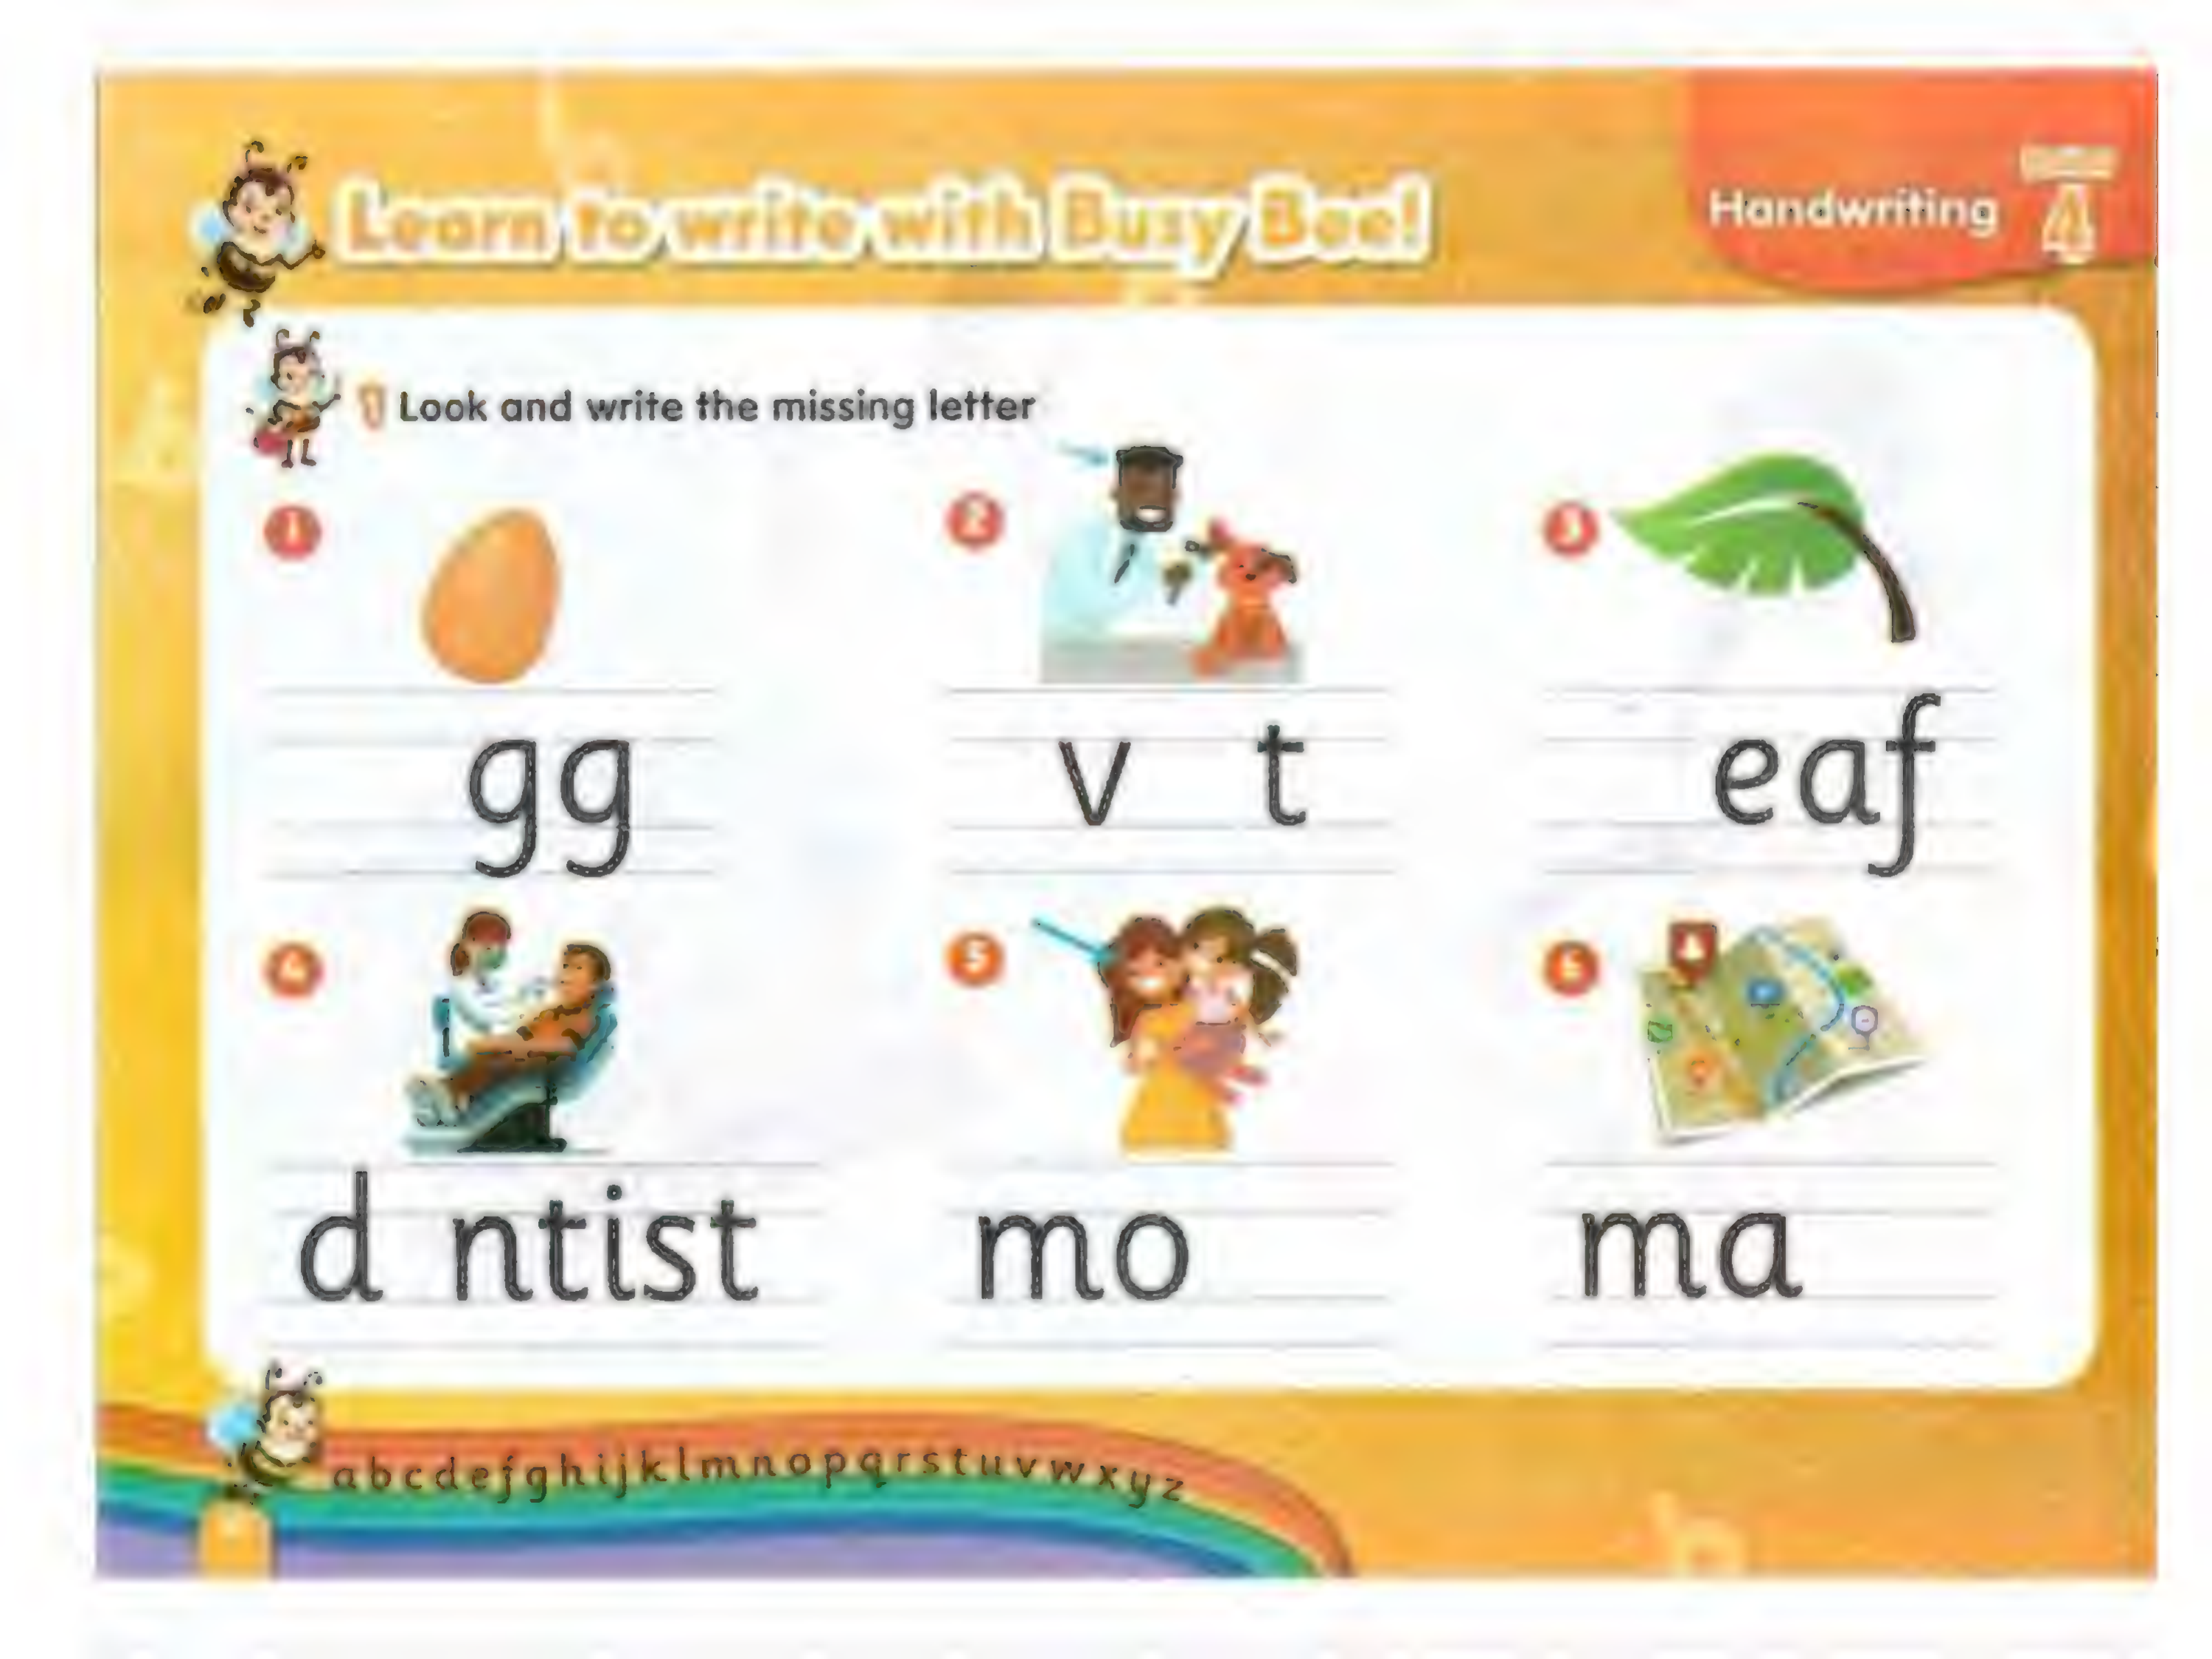 Learn to write with Busy Bee!
Handwriting
4
1 Look and write the missing letter
1
2
3
gg
v t
eaf
4
5
6
d ntist
mo
ma
a b c d e f g h i j k l m n o p q r s t u v w x y z